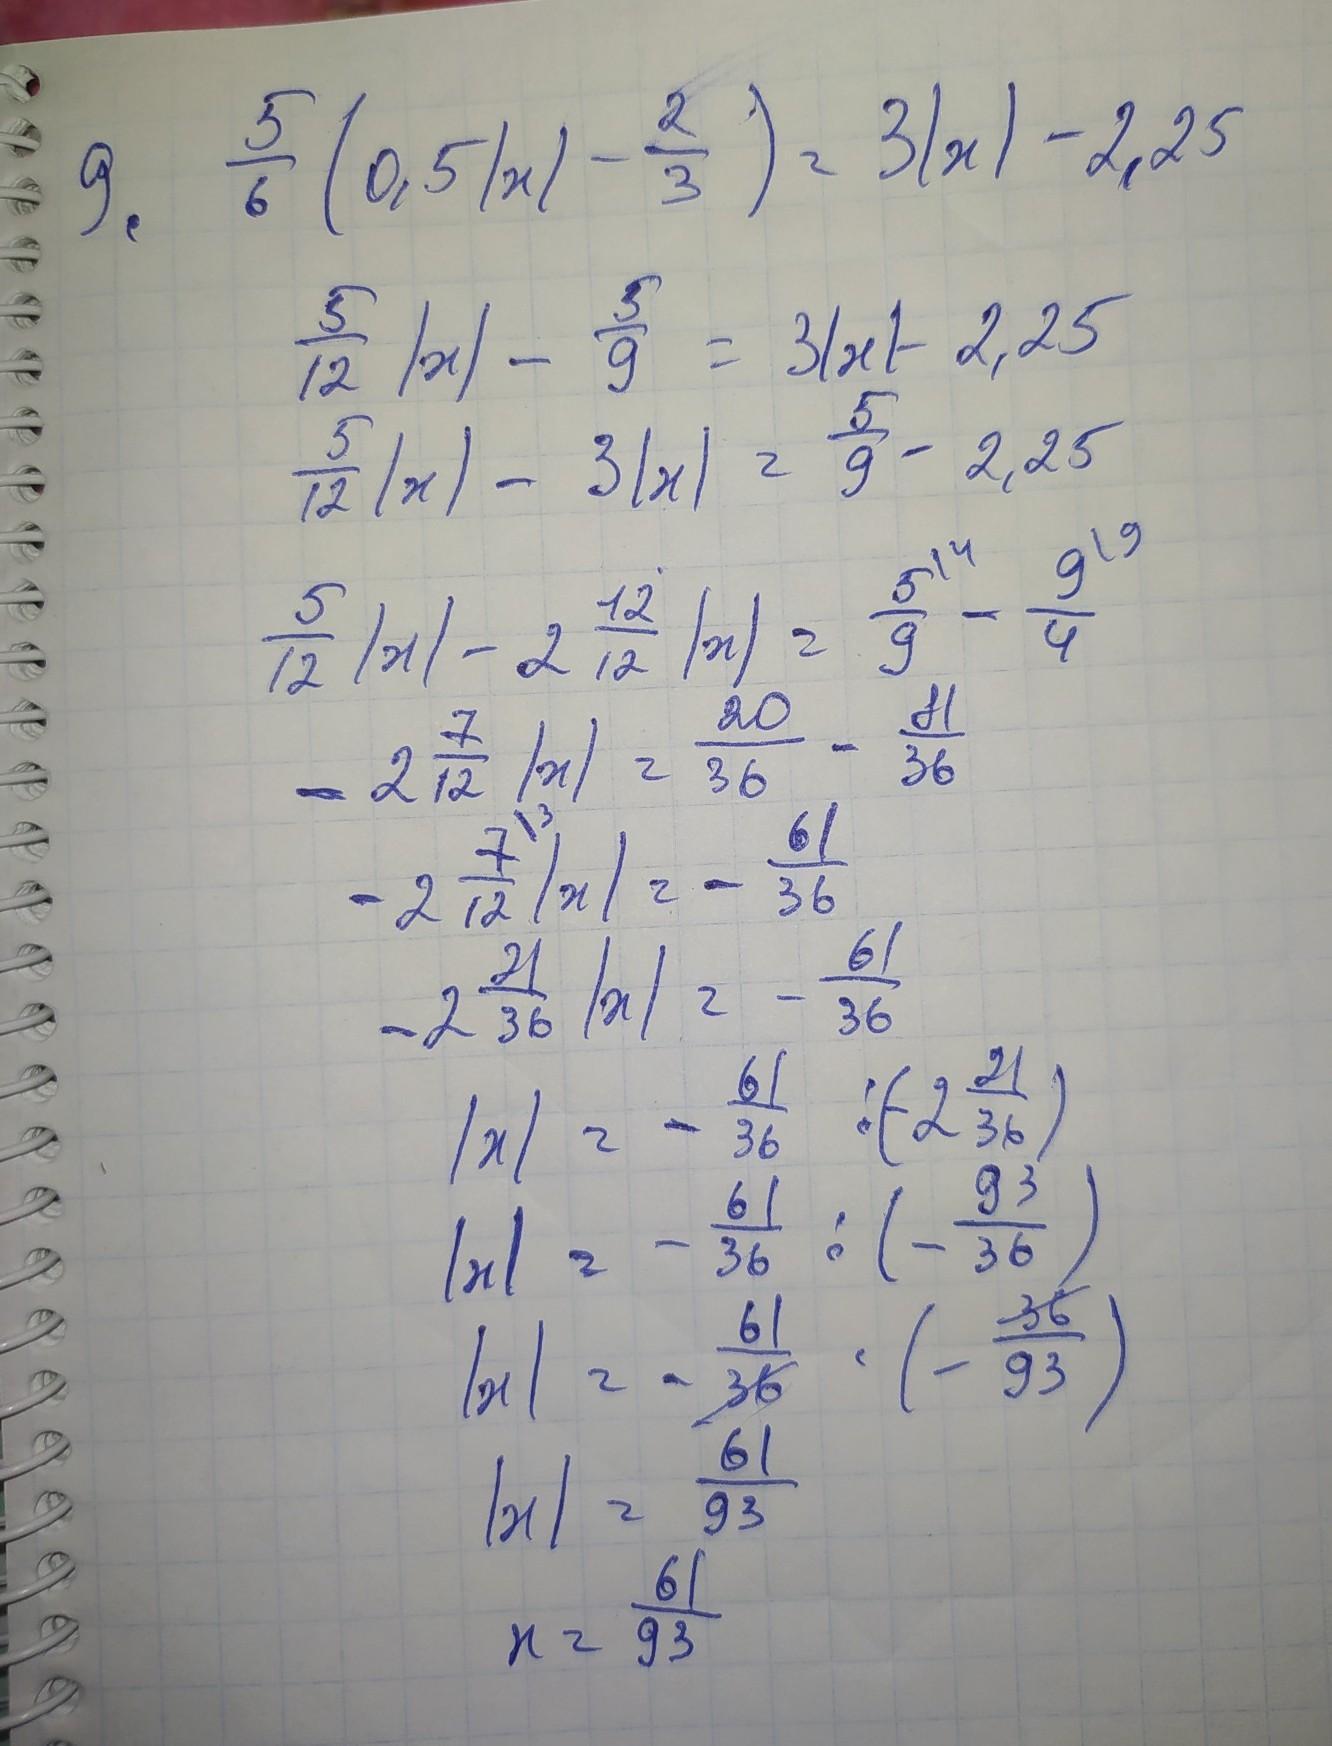 9. 5/6 (0,5|x| - 2/3) = 3|x| - 2,25
5/12 |x| - 5/9 = 3|x| - 2,25
5/12 |x| - 3|x| = 5/9 - 2,25
5/12 |x| - 2 12/12 |x| = 5/9 \4 - 9/4 \9
- 2 7/12 |x| = 20/36 - 81/36
- 2 7/12 \3 |x| = - 61/36
- 2 21/36 |x| = - 61/36
|x| = - 61/36 : (- 2 21/36)
|x| = - 61/36 : (- 93/36)
|x| = - 61/36 · (- 36/93)
|x| = 61/93
x = 61/93